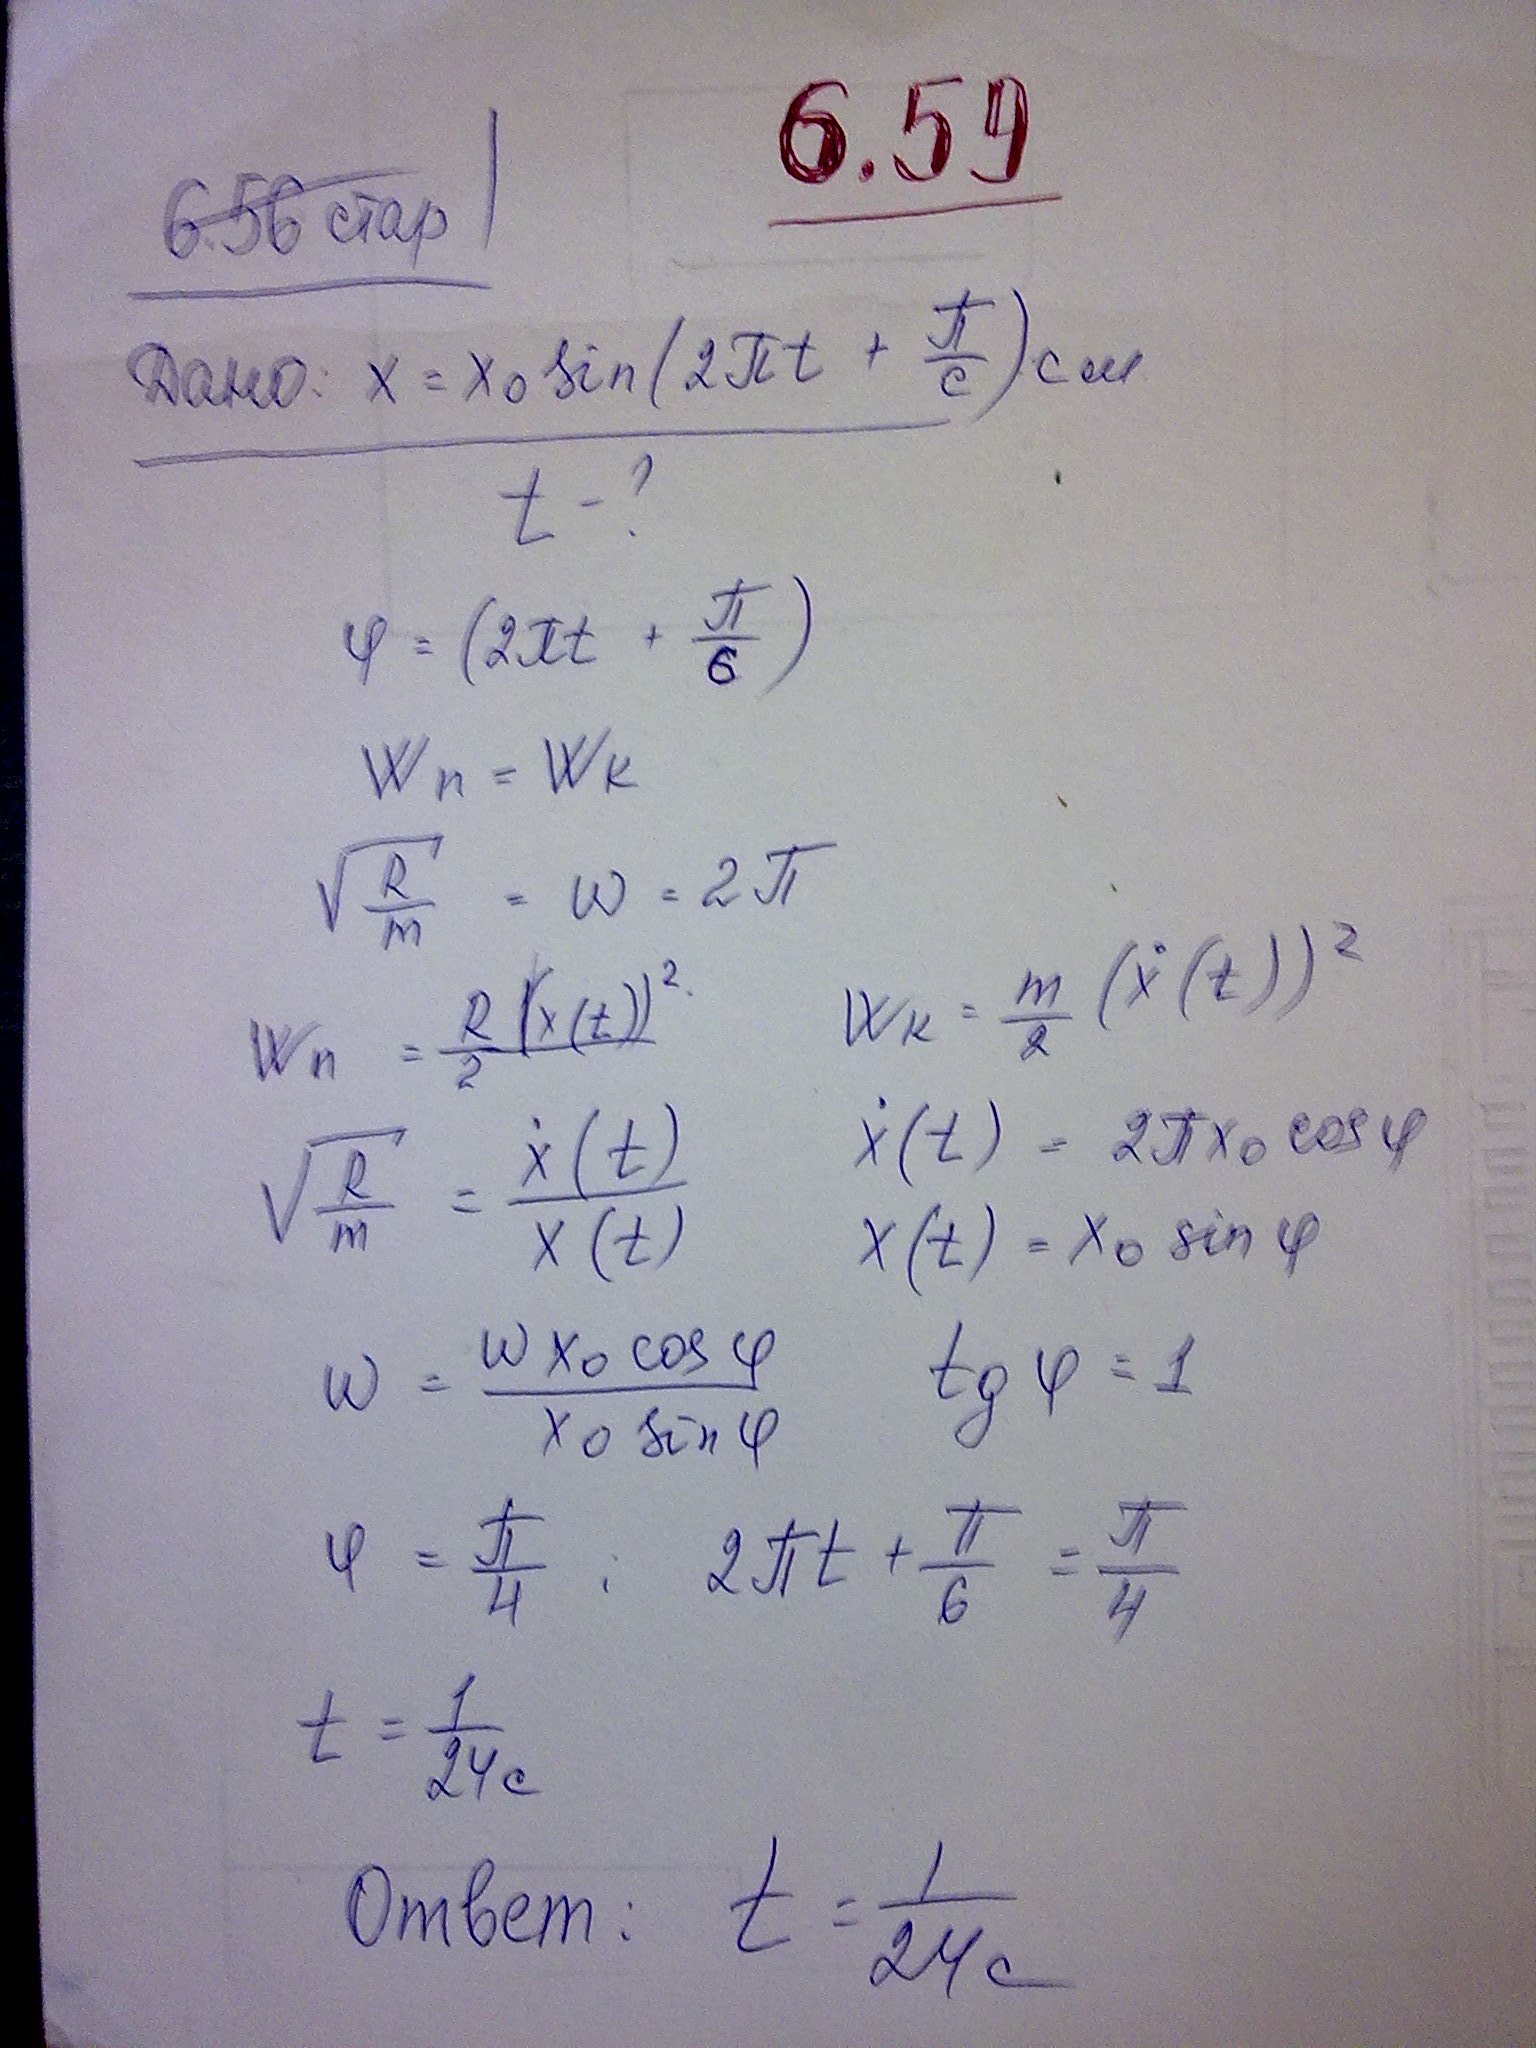 6.59
6.56 стар
Дано: x = x₀ sin(2πt + π/c) см
t - ?
φ = (2πt + π/6)
Wп = Wк
√(R/m) = ω = 2π
Wп = R/2 (x(t))² Wк = m/2 (ẋ(t))²
√(R/m) = ẋ(t)/x(t) ẋ(t) = 2πx₀ cosφ
x(t) = x₀ sin φ
ω = ωx₀ cos φ / x₀ sin φ tg φ = 1
φ = π/4 ; 2πt + π/6 = π/4
t = 1/24с
Ответ: t = 1/24с